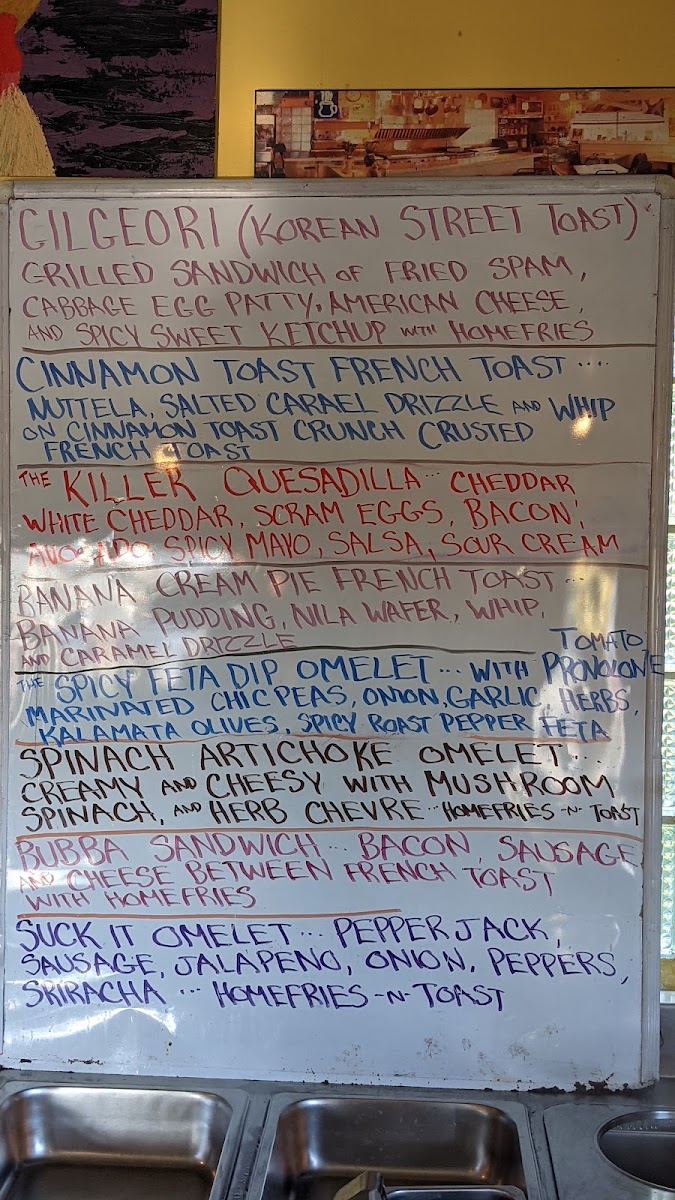 GILGEORI (KOREAN STREET TOAST)
GRILLED SANDWICH OF FRIED SPAM,
CABBAGE EGG PATTY, AMERICAN CHEESE,
AND SPICY SWEET KETCHUP WITH HOMEFRIES
CINNAMON TOAST FRENCH TOAST ....
NUTTELA, SALTED CARAEL DRIZZLE AND WHIP
ON CINNAMON TOAST CRUNCH CRUSTED
FRENCH TOAST
THE KILLER QUESADILLA... CHEDDAR
WHITE CHEDDAR, SCRAM EGGS, BACON,
AVOCADO SPICY MAYO, SALSA, SOUR CREAM
BANANA CREAM PIE FRENCH TOAST ...
BANANA PUDDING, NILA WAFER, WHIP,
AND CARAMEL DRIZZLE
THE SPICY FETA DIP OMELET ... WITH TOMATO, PROVOLONE
MARINATED CHIC PEAS, ONION, GARLIC, HERBS,
KALAMATA OLIVES, SPICY ROAST PEPPER FETA
SPINACH ARTICHOKE OMELET ...
CREAMY AND CHEESY WITH MUSHROOM
SPINACH, AND HERB CHEVRE ... HOMEFRIES -N- TOAST
BUBBA SANDWICH ... BACON, SAUSAGE
AND CHEESE BETWEEN FRENCH TOAST
WITH HOMEFRIES
SUCK IT OMELET ... PEPPER JACK,
SAUSAGE, JALAPENO, ONION, PEPPERS,
SRIRACHA ... HOMEFRIES -N- TOAST